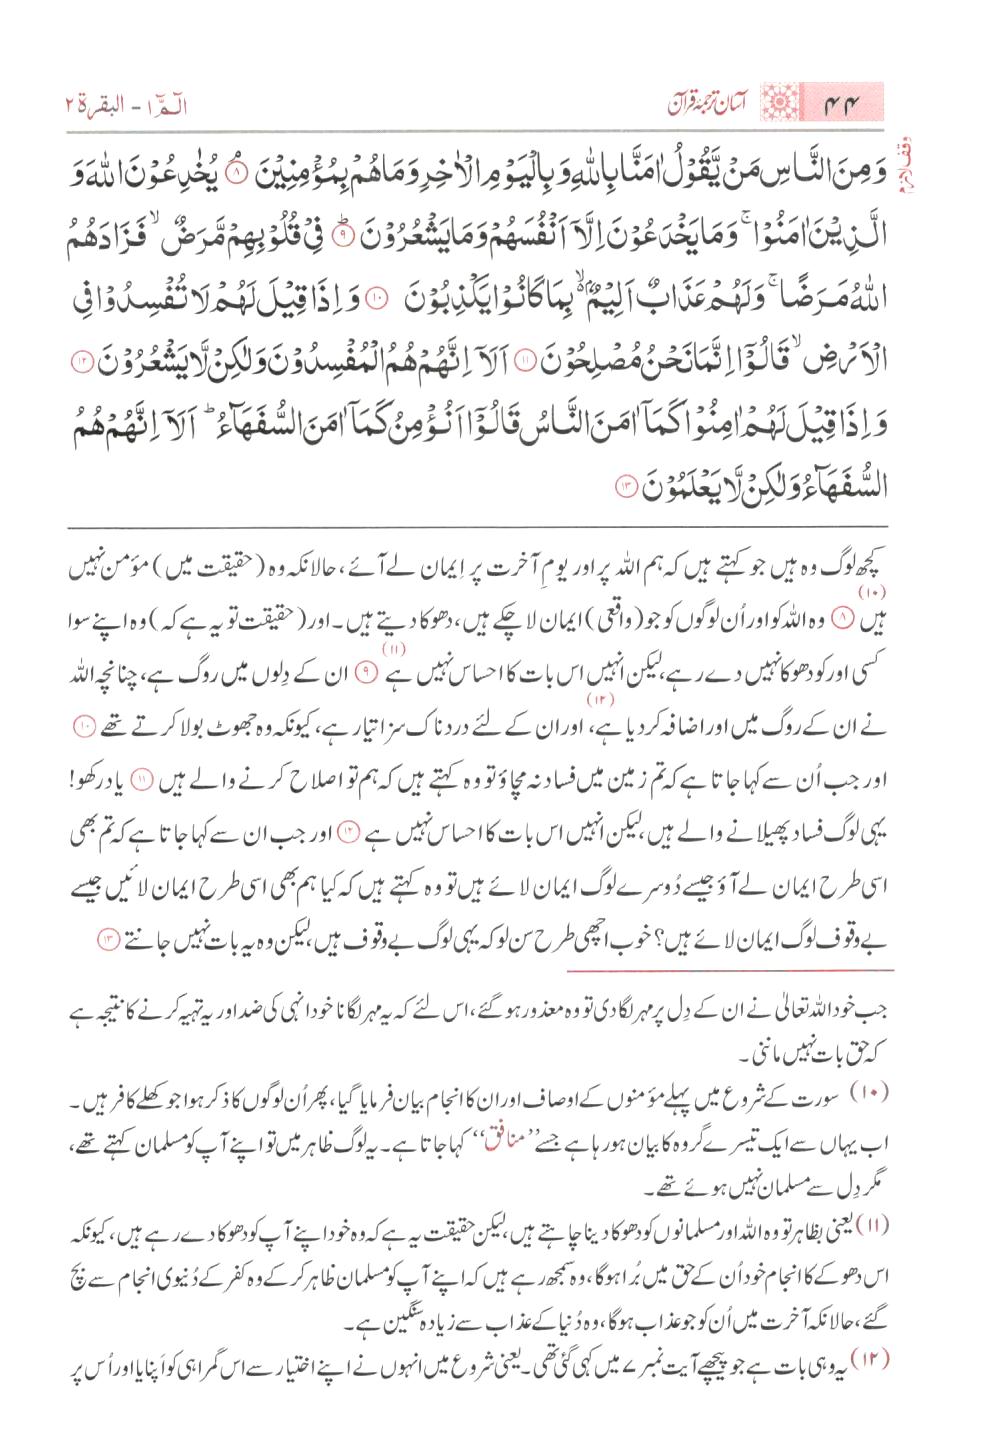 ۴۴ آسان ترجمۂ قرآن الٓمّٓ ۱ - البقرة ۲
وقف لازم
وَ مِنَ النَّاسِ مَنْ يَّقُوْلُ اٰمَنَّا بِاللّٰهِ وَ بِالْيَوْمِ الْاٰخِرِ وَ مَا هُمْ بِمُؤْمِنِيْنَ ۘ ۸ يُخٰدِعُوْنَ اللّٰهَ وَ
الَّذِيْنَ اٰمَنُوْا ۚ وَ مَا يَخْدَعُوْنَ اِلَّاۤ اَنْفُسَهُمْ وَ مَا يَشْعُرُوْنَ ؕ ۹ فِيْ قُلُوْبِهِمْ مَّرَضٌ ۙ فَزَادَهُمُ
اللّٰهُ مَرَضًا ۚ وَ لَهُمْ عَذَابٌ اَلِيْمٌۢ ۙ بِمَا كَانُوْا يَكْذِبُوْنَ ۱۰ وَ اِذَا قِيْلَ لَهُمْ لَا تُفْسِدُوْا فِي
الْاَرْضِ ۙ قَالُوْۤا اِنَّمَا نَحْنُ مُصْلِحُوْنَ ۱۱ اَلَاۤ اِنَّهُمْ هُمُ الْمُفْسِدُوْنَ وَ لٰكِنْ لَّا يَشْعُرُوْنَ ۱۲
وَ اِذَا قِيْلَ لَهُمْ اٰمِنُوْا كَمَاۤ اٰمَنَ النَّاسُ قَالُوْۤا اَنُؤْمِنُ كَمَاۤ اٰمَنَ السُّفَهَآءُ ؕ اَلَاۤ اِنَّهُمْ هُمُ
السُّفَهَآءُ وَ لٰكِنْ لَّا يَعْلَمُوْنَ ۱۳
کچھ لوگ وہ ہیں جو کہتے ہیں کہ ہم اللہ پر اور یومِ آخرت پر اِیمان لے آئے، حالانکہ وہ (حقیقت میں) مؤمن نہیں
ہیں (۱۰) ۸ وہ اللہ کو اور اُن لوگوں کو جو (واقعی) ایمان لا چکے ہیں، دھوکا دیتے ہیں۔ اور (حقیقت تو یہ ہے کہ) وہ اپنے سوا
کسی اور کو دھوکا نہیں دے رہے، لیکن انہیں اس بات کا احساس نہیں ہے (۱۱) ۹ ان کے دِلوں میں روگ ہے، چنانچہ اللہ
نے ان کے روگ میں اور اضافہ کردیا ہے، (۱۲) اور ان کے لئے دردناک سزا تیار ہے، کیونکہ وہ جھوٹ بولا کرتے تھے ۱۰
اور جب اُن سے کہا جاتا ہے کہ تم زمین میں فساد نہ مچاؤ تو وہ کہتے ہیں کہ ہم تو اصلاح کرنے والے ہیں ۱۱ یاد رکھو!
یہی لوگ فساد پھیلانے والے ہیں، لیکن انہیں اس بات کا احساس نہیں ہے ۱۲ اور جب ان سے کہا جاتا ہے کہ تم بھی
اسی طرح ایمان لے آؤ جیسے دُوسرے لوگ ایمان لائے ہیں تو وہ کہتے ہیں کہ کیا ہم بھی اسی طرح ایمان لائیں جیسے
بے وقوف لوگ ایمان لائے ہیں؟ خوب اچھی طرح سن لو کہ یہی لوگ بے وقوف ہیں، لیکن وہ یہ بات نہیں جانتے ۱۳
جب خود اللہ تعالیٰ نے ان کے دِل پر مہر لگا دی تو وہ معذور ہو گئے، اس لئے کہ یہ مہر لگانا خود انہی کی ضد اور یہ تہیہ کرنے کا نتیجہ ہے
کہ حق بات نہیں ماننی۔
(۱۰) سورت کے شروع میں پہلے مؤمنوں کے اوصاف اور ان کا انجام بیان فرمایا گیا، پھر اُن لوگوں کا ذکر ہوا جو کھلے کافر ہیں۔
اب یہاں سے ایک تیسرے گروہ کا بیان ہو رہا ہے جسے ’’منافق‘‘ کہا جاتا ہے۔ یہ لوگ ظاہر میں تو اپنے آپ کو مسلمان کہتے تھے،
مگر دِل سے مسلمان نہیں ہوئے تھے۔
(۱۱) یعنی بظاہر تو وہ اللہ اور مسلمانوں کو دھوکا دینا چاہتے ہیں، لیکن حقیقت یہ ہے کہ وہ خود اپنے آپ کو دھوکا دے رہے ہیں، کیونکہ
اس دھوکے کا انجام خود اُن کے حق میں بُرا ہوگا، وہ سمجھ رہے ہیں کہ اپنے آپ کو مسلمان ظاہر کر کے وہ کفر کے دُنیوی انجام سے بچ
گئے، حالانکہ آخرت میں اُن کو جو عذاب ہوگا، وہ دُنیا کے عذاب سے زیادہ سنگین ہے۔
(۱۲) یہ وہی بات ہے جو پیچھے آیت نمبر ۷ میں کہی گئی تھی۔ یعنی شروع میں انہوں نے اپنے اختیار سے اس گمراہی کو اَپنایا اور اُس پر